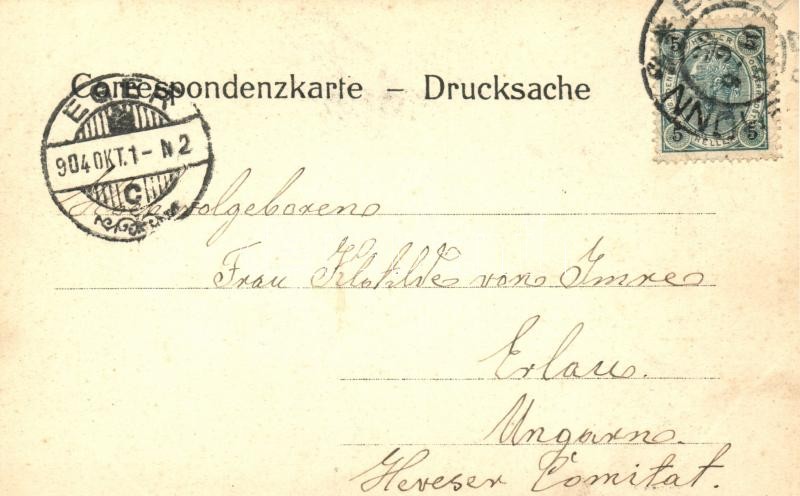 Correspondenzkarte – Drucksache
EGER
904 OKT. 1 - N 2
C
5 HELLER 5
5 HELLER 5
Hochwolgeboren
Frau Klotilde von Imre
Erlau.
Ungarn.
Heveser Comitat.